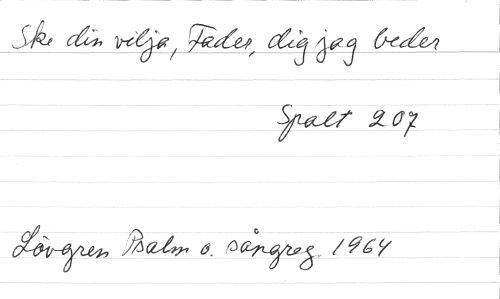 Ske din vilja, Fader, dig jag beder
Spalt 207
Lövgren Psalm o. sångreg. 1964